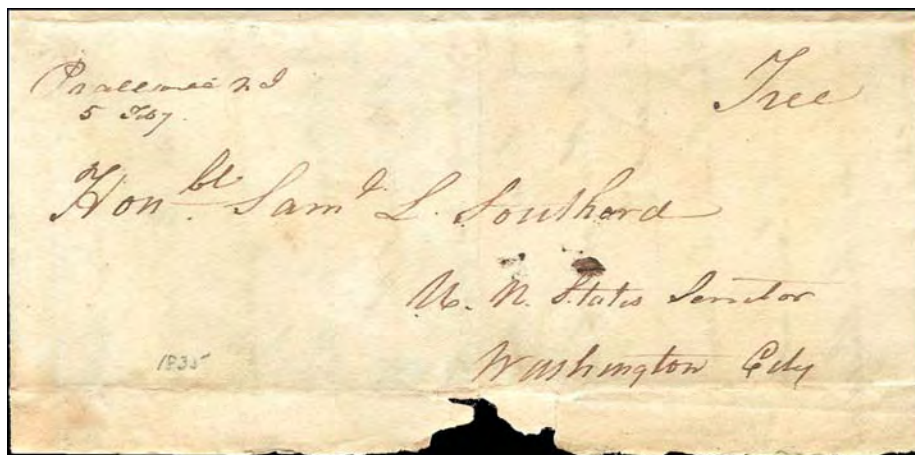 Prallsville N J
5 Feby.
Free
Hon.ble Sam.l L. Southard
U. N. States Senator
Washington City
1835